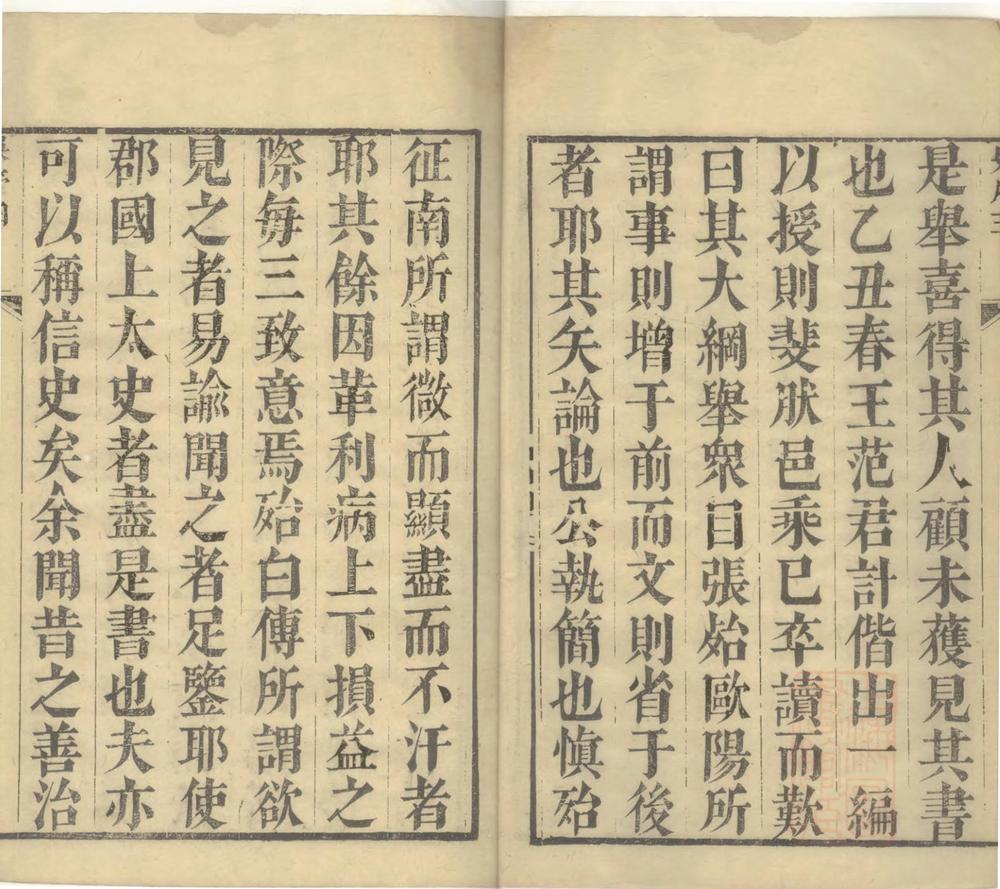 是舉喜得其人顧未蒦見其書
也乙丑春王范君計偕出一編
以授則斐肰邑乘已卒讀而歎
曰其大綱舉衆目張殆歐陽所
謂事則增于前而文則省于後
者耶其矢論也公執簡也慎殆
征南所謂微而顯盡而不汙者
耶其餘因革利病上下損益之
際每三致意焉殆白傳所謂欲
見之者易諭聞之者足鑒耶使
郡國上太史者盡是書也夫亦
可以稱信史矣余聞昔之善治